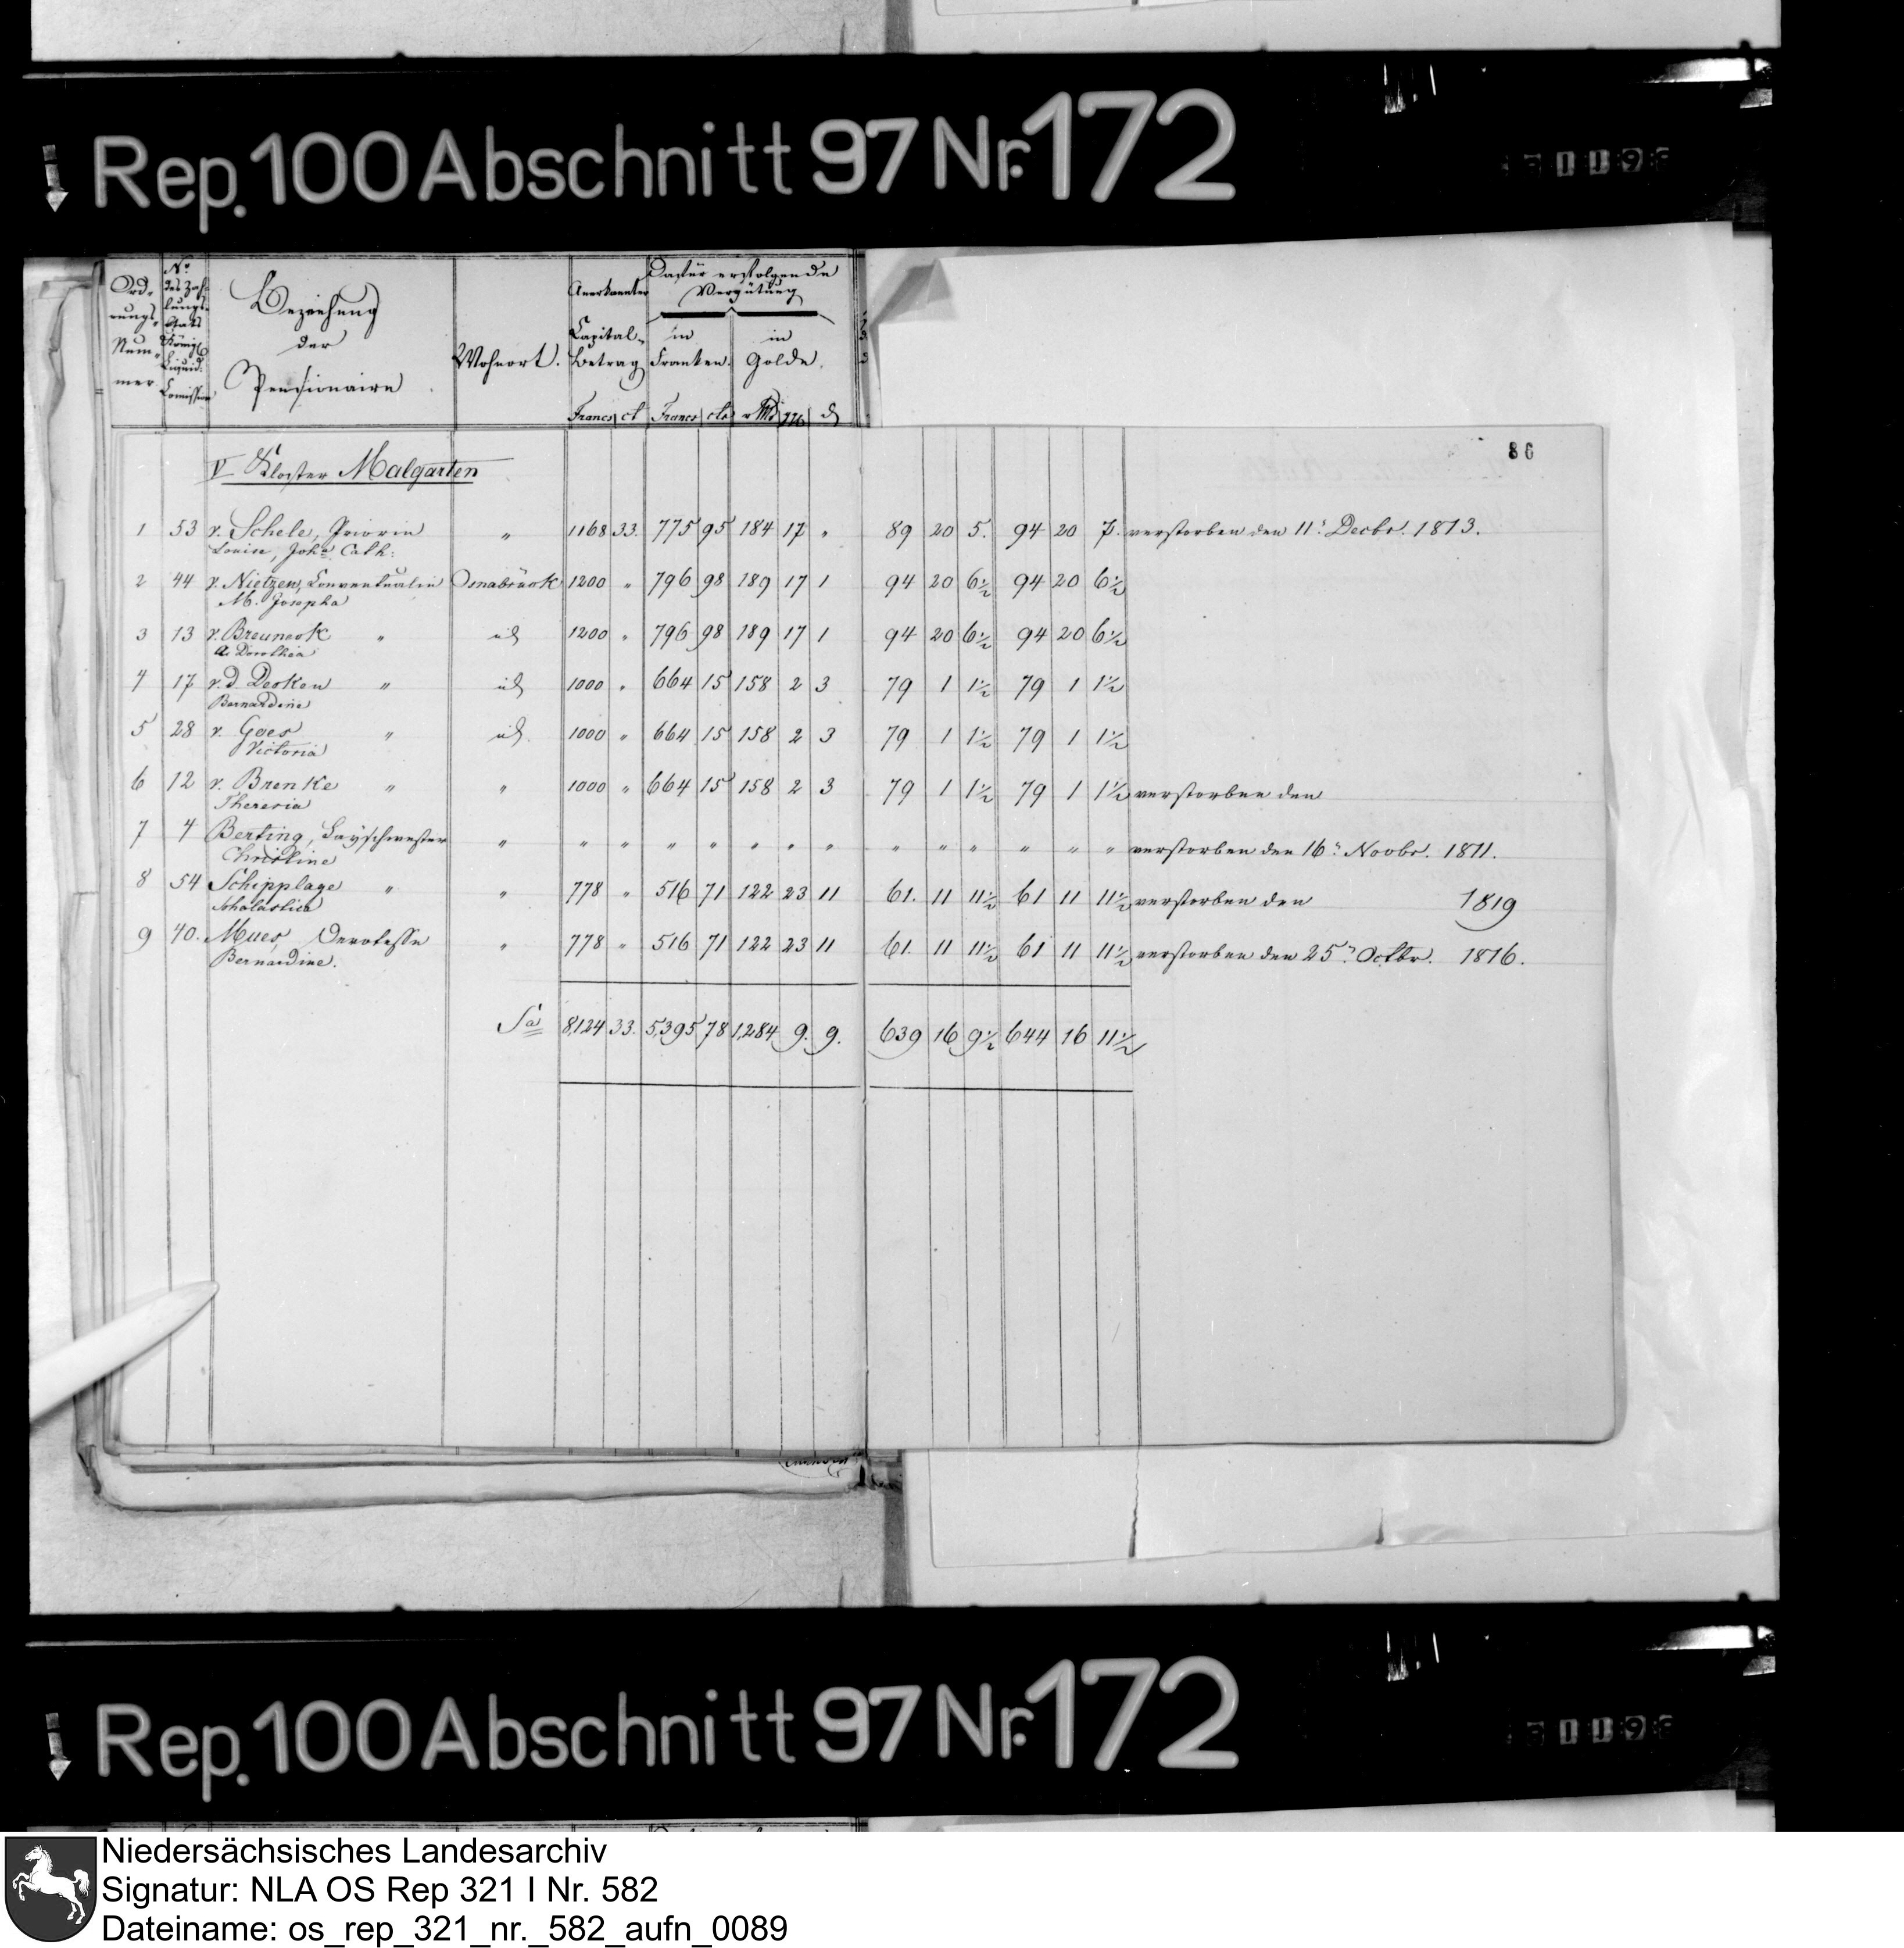 Rep. 100 Abschnitt 97 Nr. 172
Ord-
nungs-
Num-
mer
No
des Zah-
lungs-
Etats
Königl.
Liquid.
Comission
Beziehung
der
Pensionaire
Wohnort.
Anerkannter
Capital-
Betrag
Francs ct
Dafür erfolgende
Vergütung
in
Franken.
Francs cts
in
Golde.
86
V Kloster Malgarten
1 53 v. Schele, Priorin " 1168 33. 775 95 184 17 " 89 20 5. 94 20 7. verstorben den 11t Decbr. 1813.
Louise, Joha Cath:
2 44 v. Nietzen, Conventualin Osnabrück 1200 " 796 98 189 17 1 94 20 6½ 94 20 6½
M. Josepha
3 13 v. Breuneck " id 1200 " 796 98 189 17 1 94 20 6½ 94 20 6½
A. Dorothea
4 17 v. d. Decken " id 1000 " 664 15 158 2 3 79 1 1½ 79 1 1½
Bernardine
5 28 v. Goes " id. 1000 " 664 15 158 2 3 79 1 1½ 79 1 1½
Victoria
6 12 v. Brenke " " 1000 " 664 15 158 2 3 79 1 1½ 79 1 1½ verstorben den
Theresia
7 4 Berting, Layschwester " " " " " " " " " " " " " " verstorben den 16t Novbr. 1811.
Christine
8 54 Schipplage " " 778 " 516 71 122 23 11 61. 11 11½ 61 11 11½ verstorben den 1819
Scholastica
9 40. Mues, Devotesse " 778 " 516 71 122 23 11 61. 11 11½ 61 11 11½ verstorben den 25t Octbr. 1816.
Bernardine.
Sa 8,124 33. 5,395 78 1,284 9. 9. 639 16 9½ 644 16 11½
Rep. 100 Abschnitt 97 Nr. 172
Niedersächsisches Landesarchiv
Signatur: NLA OS Rep 321 I Nr. 582
Dateiname: os_rep_321_nr._582_aufn_0089